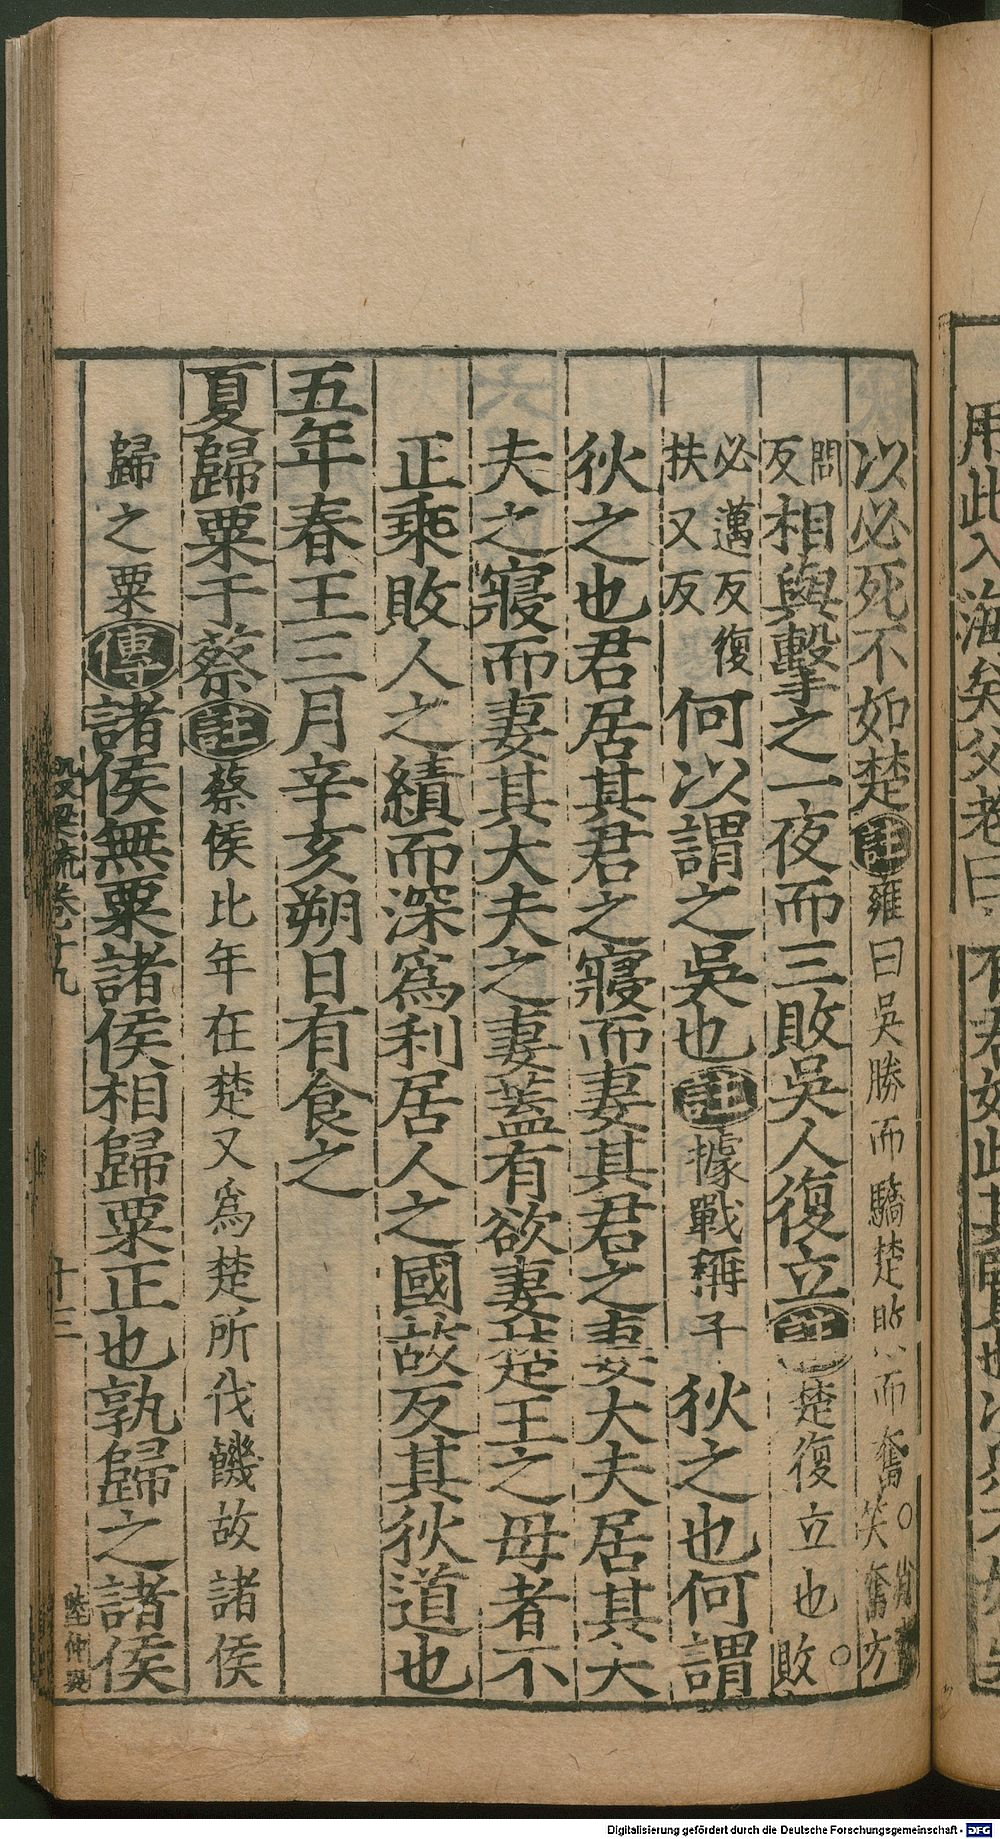 以必死不如楚註雍曰吳勝而驕楚敗而奮○笑奮方
問反相與擊之一夜而三敗吳人復立註楚復立也○敗
必邁反復扶又反何以謂之吳也註據戰稱子狄之也何謂
狄之也君居其君之寢而妻其君之妻大夫居其大
夫之寢而妻其大夫之妻蓋有欲妻楚王之母者不
正乘敗人之績而深爲利居人之國故反其狄道也
五年春王三月辛亥朔日有食之
夏歸粟于蔡註蔡侯比年在楚又爲楚所伐饑故諸侯
歸之粟傳諸侯無粟諸侯相歸粟正也孰歸之諸侯
穀梁疏卷十九
十三
陸仲興
用此入海矣父老曰
有君如此其賢也
Digitalisierung gefördert durch die Deutsche Forschungsgemeinschaft - DFG